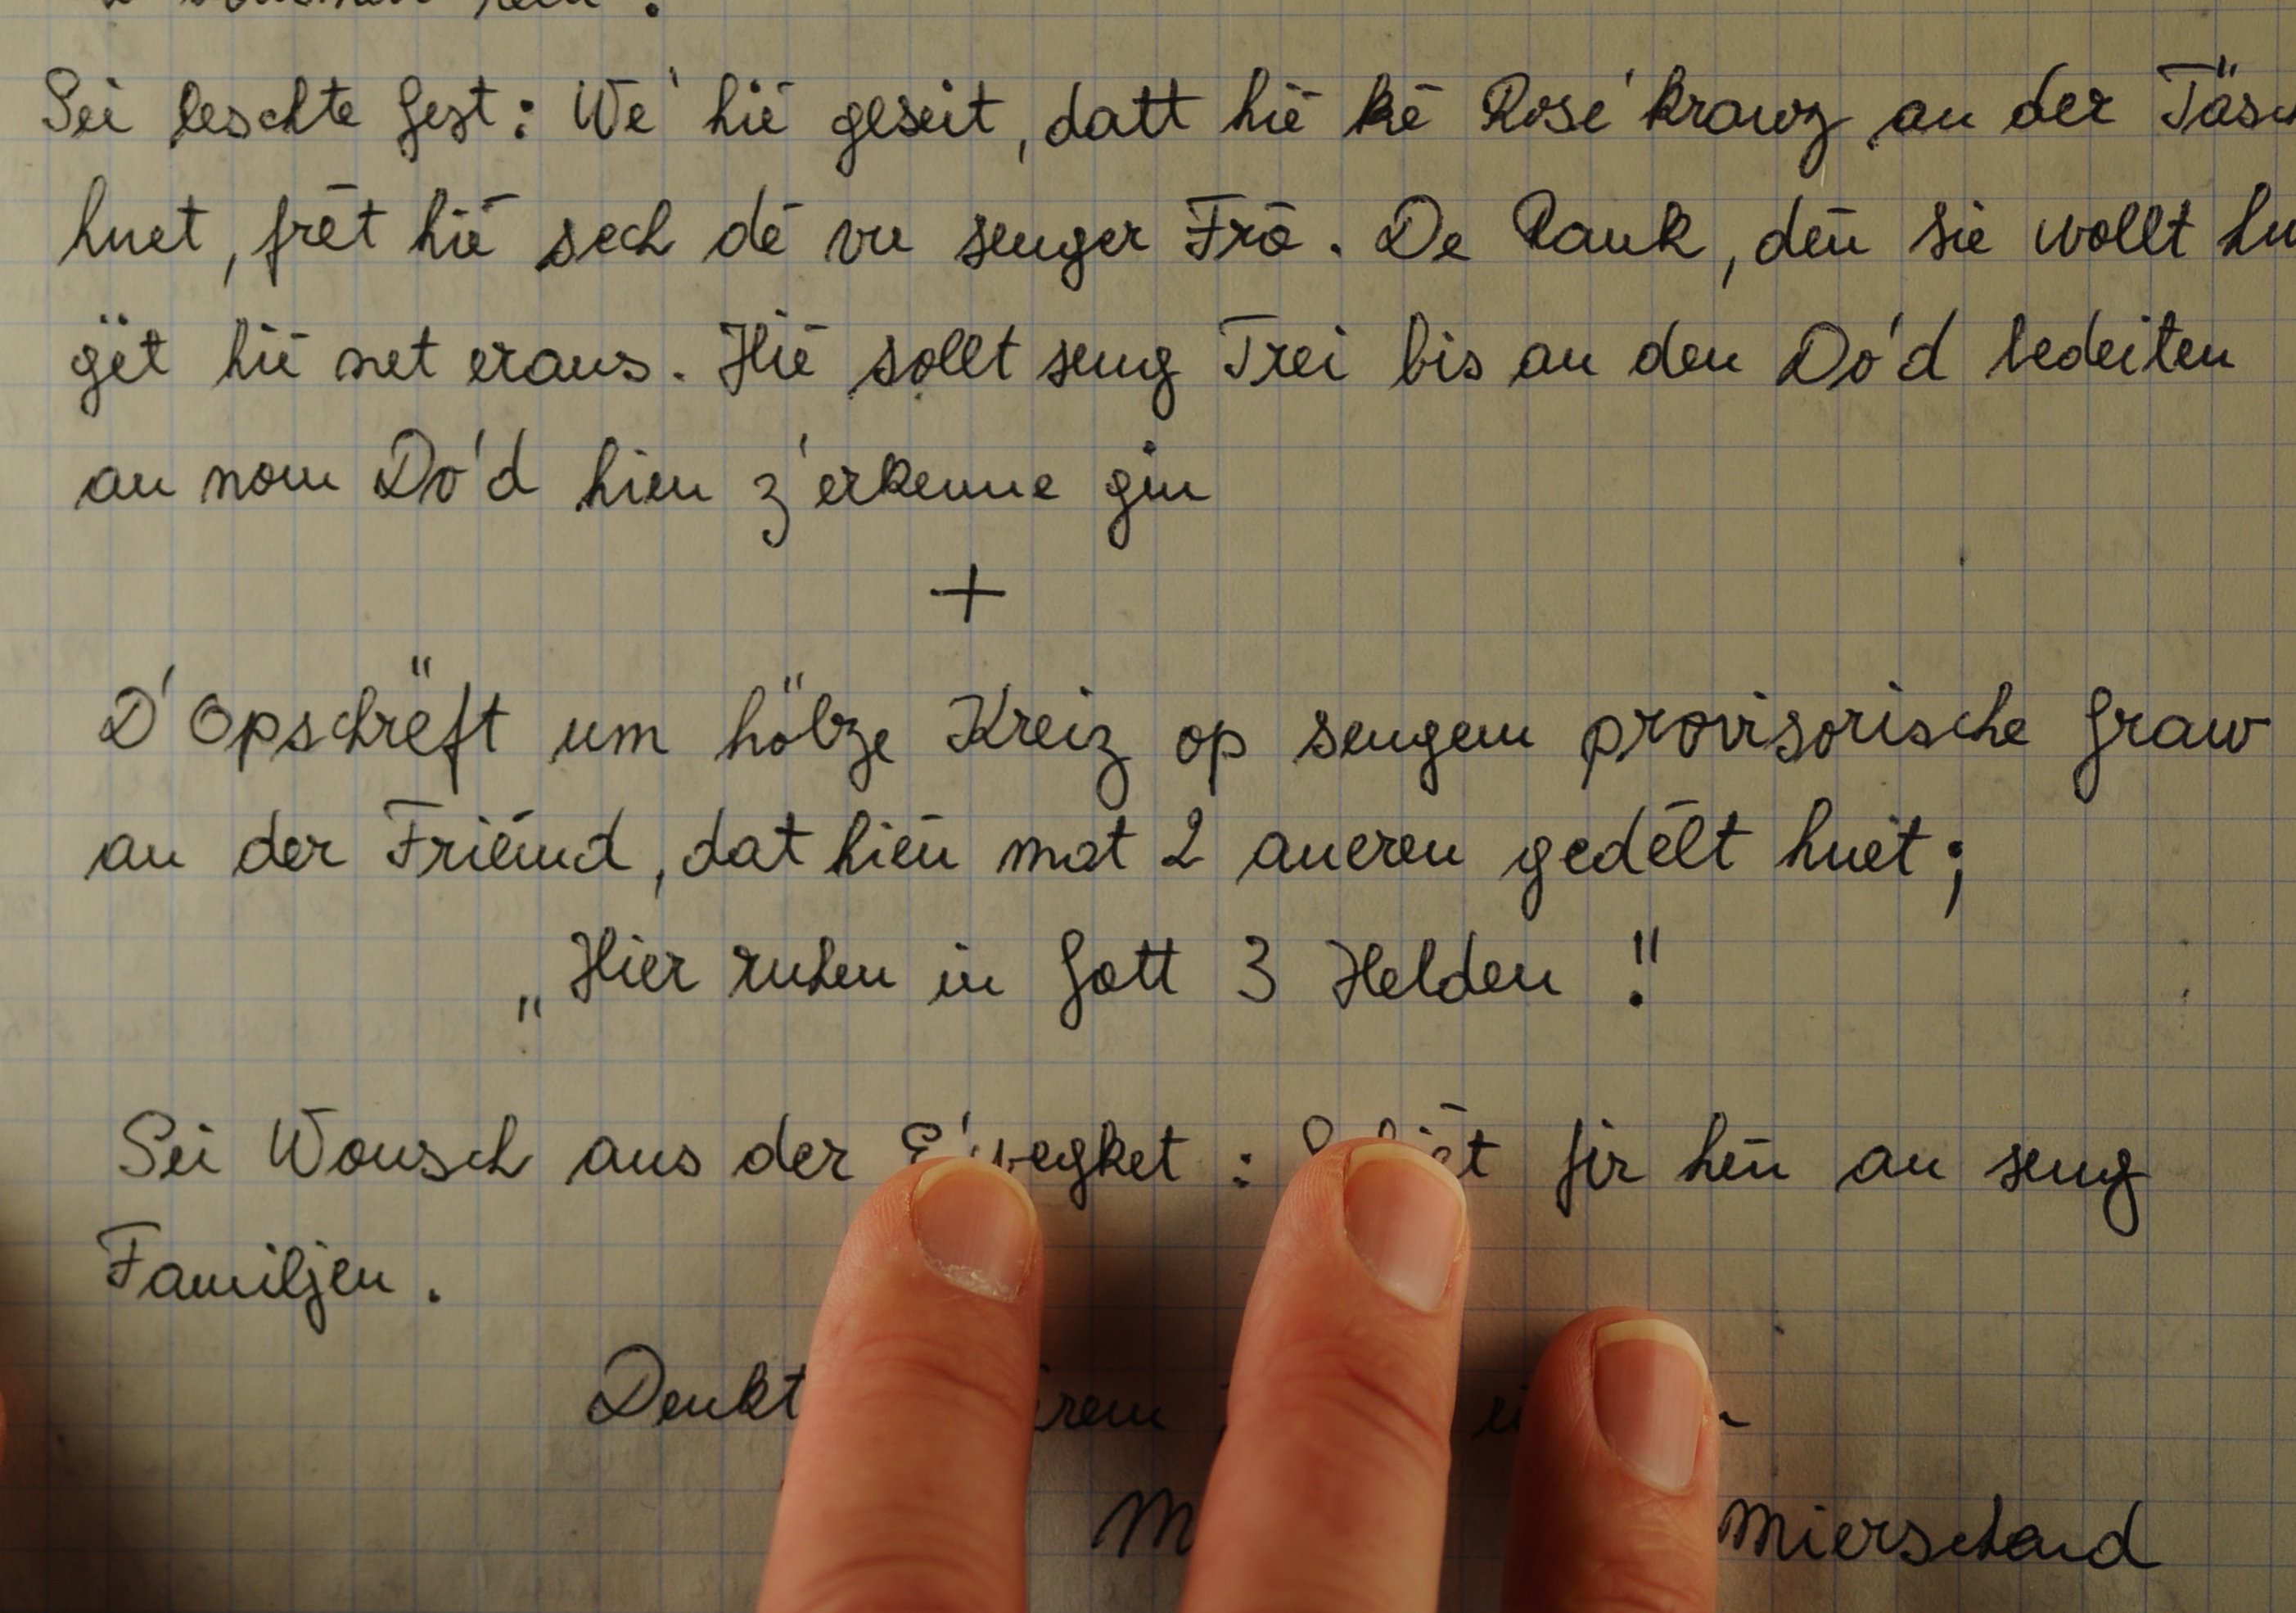 Sei leschte Gest: We' hië geseit, datt hië kē Rose'kranz an der
huet, frēt hië sech dē vu senger Frā. De Rank, dēn sie wollt
gët hië net eraus. Hië sollt seng Trei bis an den Do'd bedeiten
an nom Do'd hien z'erkenne gin
+
D'Opschrëft um hölze Kreiz op sengem provisorische Graw
an der Friēmd, dat hiēn mat 2 aneren gedēlt huet;
„Hier ruhen in Gott 3 Helden!"
Sei Wonsch aus der : fir hēn an seng
Familjen.
Denkt
Mierschend